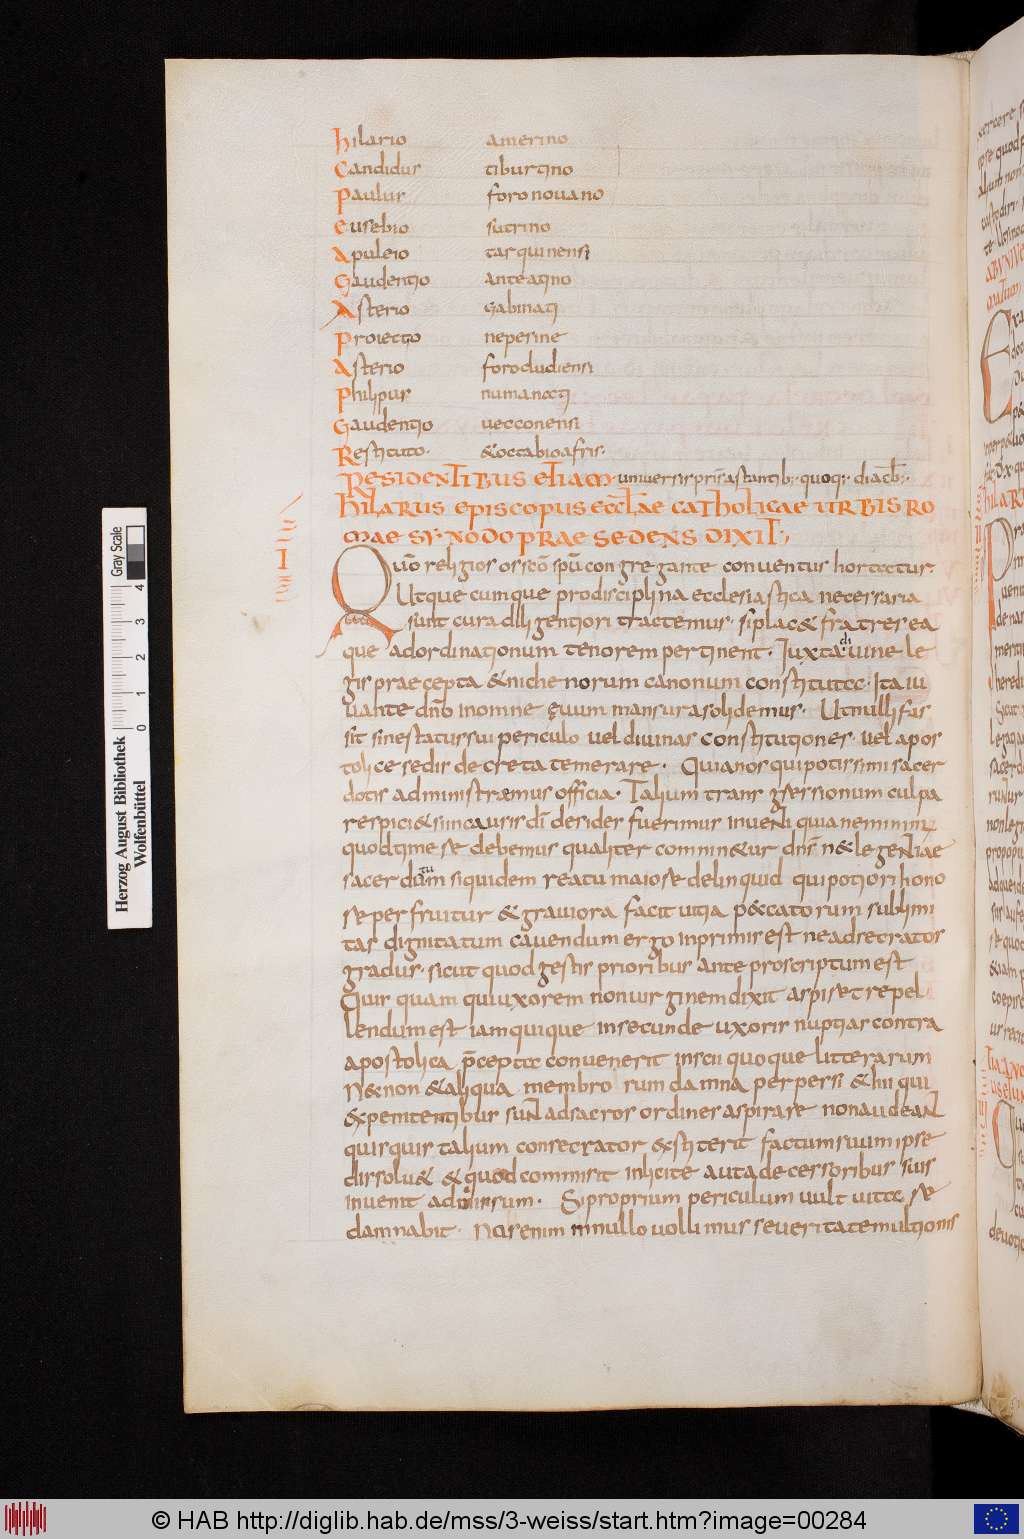 hilario amerino
Candidus tiburtino
Paulus foronouano
eusebio sutrino
Apuleio tarquinensi
Gaudentio anteatino
Asterio Gabinati
Proiecto nepesine
Asterio forocludiensi
Philippus numanati
Gaudentio uecconensi
Restituto. &octabioafris.
RESIDENTIBUS ETIAM uniuersis prīs astantib; quoq; diacb;
HILARUS EPISCOPUS ECCLAE CATHOLICAE URBIS RO
MAE SYNODO PRAESEDENS DIXIT;
I
Quō religios osscō spū congregante conuentus hortatur
Utque cumque prodisciplina ecclesiastica necessaria
sunt cura diligentiori tractemus. siplac& fratres ea
que adordinationum tenorem pertinent. Iuxta diuine le
gis praecepta &nichenorum canonum constituta. Ita iu
uante dnō inomne ęuum mansura solidemus. Utnulli fas
sit sinestatussui periculo uel diuinas constitutiones. uel apos
tolice sedis decreta temerare. Quianos quipotissimi sacer
dotis administramus officia. Talium transgsersionum culpa
respici& siincausis dī desides fuerimus inuenti quia neminim;
quodtimese debemus qualiter comnin&ur dnī n&legentiae
sacerdotum siquidem reatu maiose delinquid qui potiori hono
se perfruitur &grauiora facit uitia p&catorum sublimi
tas dignitatum cauendum ergo inprimis est neadsecratos
gradus. sicut quod gestis prioribus ante proscriptum est
Quis quam quiuxorem nonuirginem dixit aspiset repel
lendum est iamquique insecunde uxoris nuptias contra
apostolica p̄cepta conuenerit inscii quoque litterarum
N&non &aliqua membrorum damna perpersi &hii qui
&penitentibus sunt adsacros ordines aspirare non audeant
quisquis talium consecrator &stiterit factumsuum ipse
dissolu& &quod commisit inlicite auta decessoribus suis
inuenit admissum. Siproprium periculum uult uitase
damnabit. Nos enim innullo uollimus seueritatem ultionis
Gray Scale
0 1 2 3 4
Herzog August Bibliothek
Wolfenbüttel
© HAB http://diglib.hab.de/mss/3-weiss/start.htm?image=00284